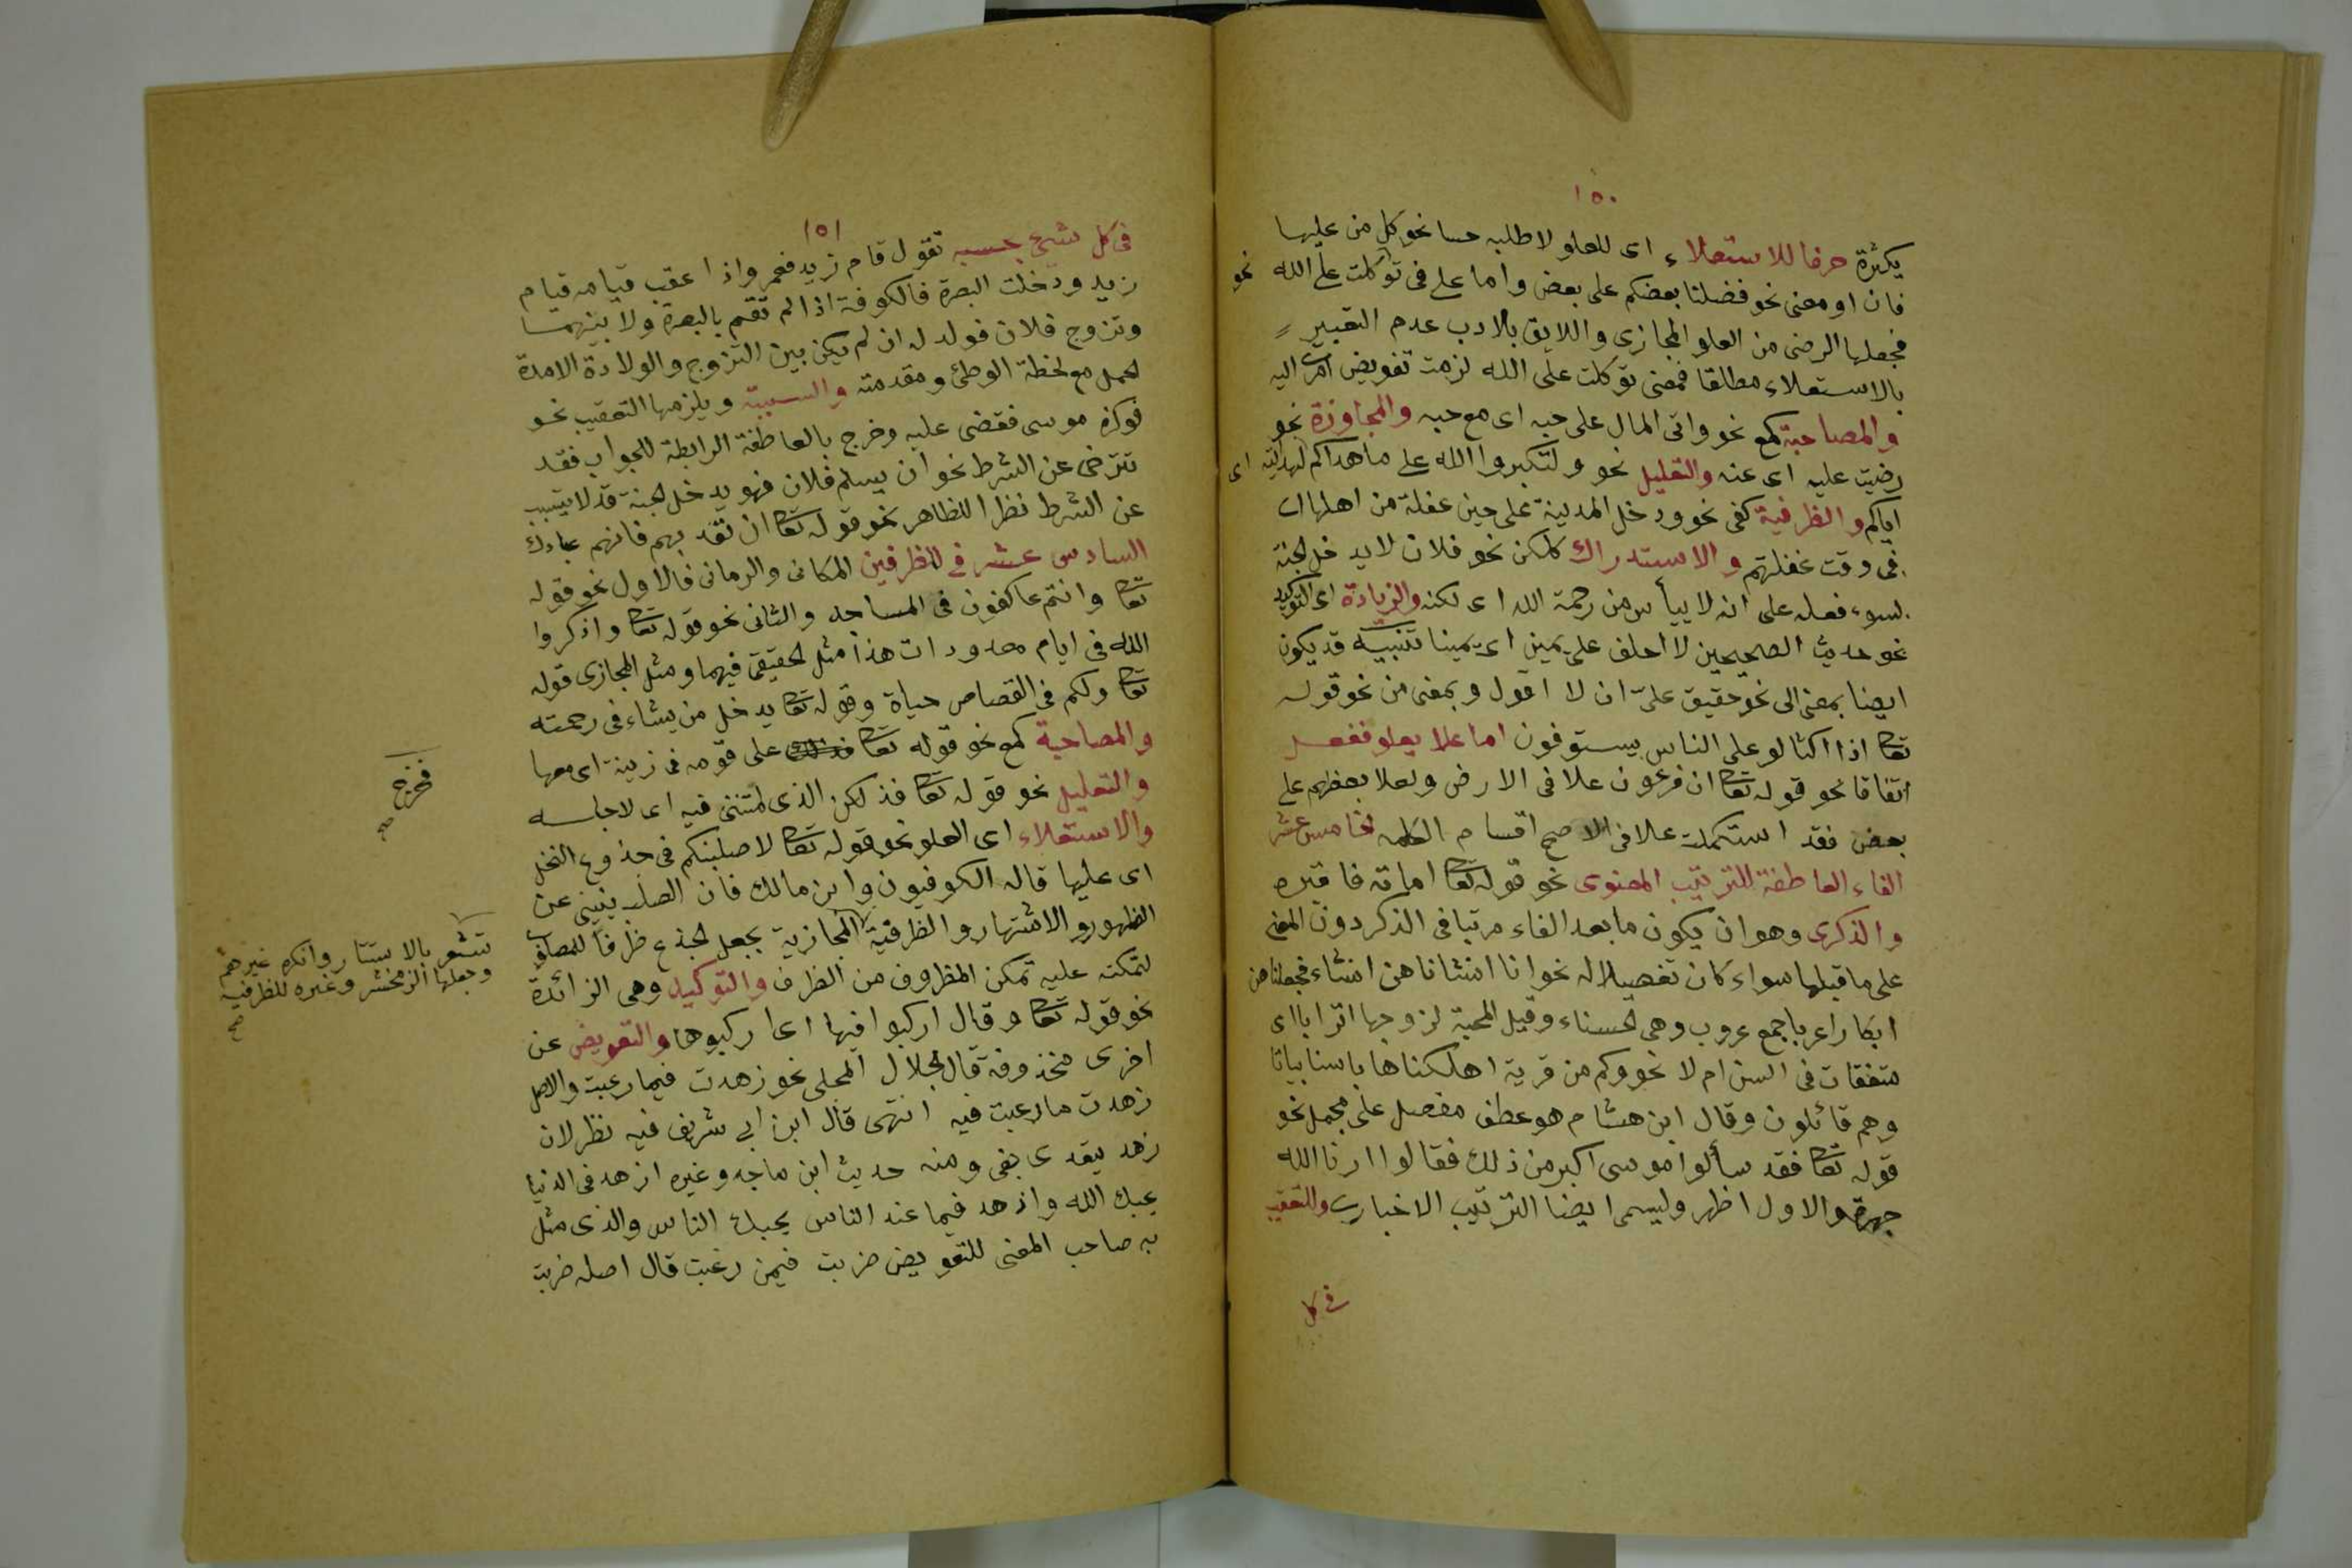 ١٥٠
يكثرة حرفا للاستعلاء اى للعلو لا طلبه حسا نحو كل من عليها
فان او معنى نحو فضلنا بعضكم على بعض واما على فى توكلت على الله نحو
فجعلها الرضى من العلو المجازى واللايق بالادب عدم التعبير
بالاستعلاء مطلقا فمعنى توكلت على الله لزمت تفويض امرى اليه
والمصاحبة كمع نحو واتى المال على حبه اى مع حبه والمجاوزة نحو
رضيت عليه اى عنه والتعليل نحو ولتكبروا الله على ما هداكم لهدايته اى
اياكم والظرفية كفى نحو ودخل المدينة على حين غفلة من اهلها اى
فى وقت غفلتهم والاستدراك كلكن نحو فلان لا يدخل الجنة
لسوء فعله على انه لا ييأس من رحمة الله اى لكنه والزيادة اى التوكيد
نحو حديث الصحيحين لا احلف على يمين اى يمينا تنبيه قد يكون
ايضا بمعنى الى نحو حقيق على ان لا اقول وبمعنى من نحو قوله
تعا اذا اكتالو على الناس يستوفون اما علا يعلو ففعل
اتفاقا نحو قوله تعا ان فرعون علا فى الارض ولعلا بعضهم على
بعض فقد استكملت علا فى الاصح اقسام الكلمه الخامس عشر
الفاء العاطفة للترتيب المعنوى نحو قوله تعا اماته فاقبره
والذكرى وهو ان يكون ما بعد الفاء مرتبا فى الذكر دون المعنى
على ما قبلها سواء كان تفصيلا له نحو انا انشاناهن انشاء فجعلناهن
ابكارا عربا جمع عروب وهى الحسناء وقيل المحبة لزوجها اترابا اى
متفقات فى السن ام لا نحو وكم من قرية اهلكناها باسنا بياتا
وهم قائلون وقال ابن هشام هو عطف مفصل على مجمل نحو
قوله تعا فقد سألوا موسى اكبر من ذلك فقالوا ارنا الله
جهرة والاول اظهر وليسمى ايضا الترتيب الاخبارى وللتعقيب
فى كل
١٥١
فى كل شيئ بحسبه تقول قام زيد فعمرو اذا عقب قيامه قيام
زيد ودخلت البصرة فالكوفة اذا لم تقم بالبصرة ولا بينهما
وتزوج فلان فولد له ان لم يكن بين التزوج والولادة الا مدة
الحمل مع لحظة الوطئ ومقدمته والسببية ويلزمها التعقيب نحو
فوكزه موسى فقضى عليه وخرج بالعاطفة الرابطة للجواب فقد
تتراخى عن الشرط نحو ان يسلم فلان فهو يدخل الجنة قد لا يتسبب
عن الشرط نظرا للظاهر نحو قوله تعا ان تعذبهم فانهم عبادك
السادس عشر فى للظرفين المكانى والزمانى فالاول نحو قوله
تعا وانتم عاكفون فى المساجد والثانى نحو قوله تعا واذكروا
الله فى ايام معدودات هذا مثل الحقيقى فيهما ومثل المجازى قوله
تعا ولكم فى القصاص حياة وقوله تعا يدخل من يشاء فى رحمته
والمصاحبة كمع نحو قوله تعا على قومه فى زينة اى معها
والتعليل نحو قوله تعا فذلكن الذى لمتننى فيه اى لاجله
والاستعلاء اى العلو نحو قوله تعا لاصلبنكم فى جذوع النخل
اى عليها قاله الكوفيون وابن مالك فان الصلب ينبئ عن
الظهور والاشتهار والظرفية المجازية بجعل الجذع ظرفا للمصلوب
لتمكنه عليه تمكن المظروف من الظرف والتوكيد وهى الزائدة
نحو قوله تعا وقال اركبوا فيها اى اركبوها والتعويض عن
اخرى محذوفة قال الجلال المحلى نحو زهدت فيما رغبت والاصل
زهدت ما رغبت فيه انتهى قال ابن ابى شريف فيه نظر لان
زهد يتعدى بفى ومنه حديث ابن ماجه وغيره ازهد فى الدنيا
يحبك الله وازهد فيما عند الناس يحبك الناس والذى مثل
به صاحب المغنى للتعويض ضربت فيمن رغبت قال اصله ضربت
فخرج
صح
تشعر بالاستتار وانكره غيرهم
وجعلها الزمخشر وغيره للظرفية
صح